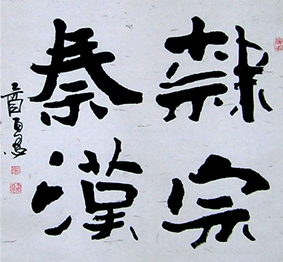 隸宗
秦漢